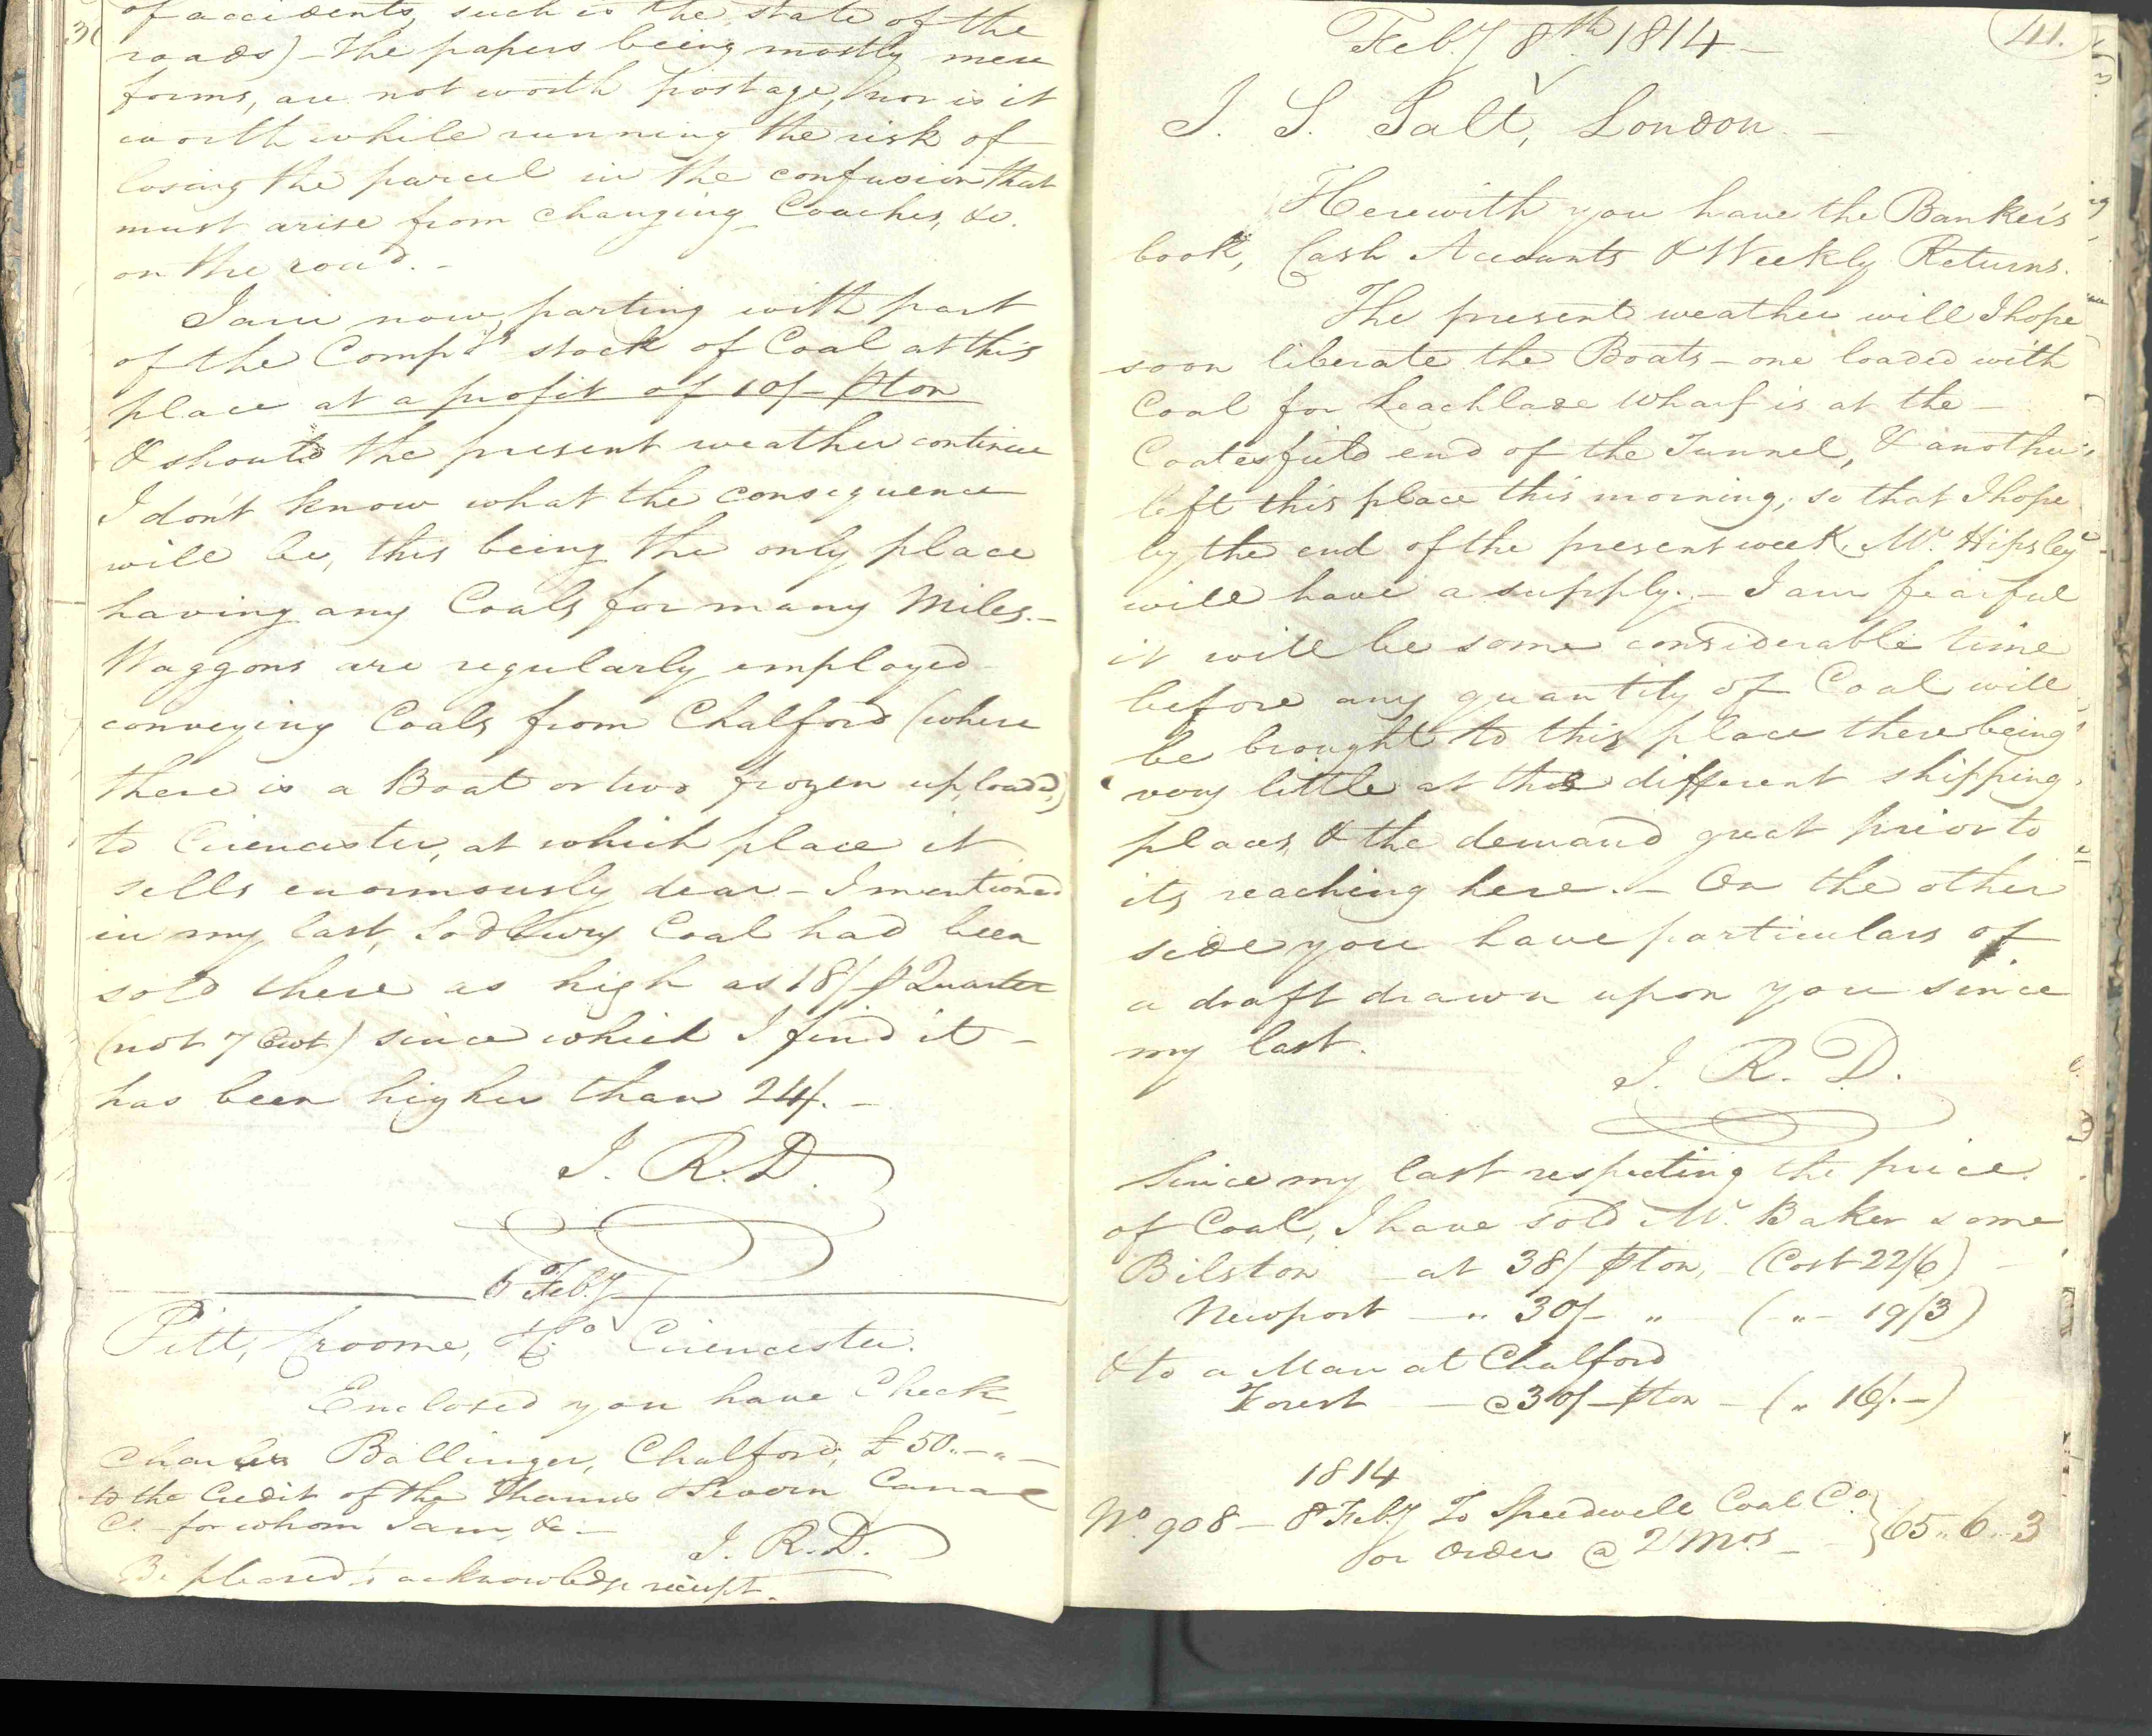 of accidents, such is the state of the
roads) - the papers being mostly mere
forms, are not worth postage, nor is it
worth while running the risk of
losing the parcel in the confusion that
must arise from changing Coaches, &c.
on the road. -
I am now parting with part
of the Compys stock of Coal at this
place at a profit of 10/- ⅌ ton
& should the present weather continue
I don't know what the consequence
will be, this being the only place
having any Coals for many Miles. -
Waggons are regularly employed
conveying Coals from Chalford (where
there is a Boat or two frozen up, loaded,)
to Cirencester, at which place it
sells enormously dear - I mentioned
in my last, Sodbury Coal had been
sold there as high as 18/- ⅌ Quarter
(not 7 Cwt) since which I find it -
has been higher than 24/. -
J. R. D.
6 Feby
Pitt, Croome, & Co Cirencester.
Enclosed you have Check,
Charles Ballinger, Chalford, £50..-..-
to the Credit of the Thames & Severn Canal
Co. for whom I am, &c -
J. R. D.
Be pleased to acknowledge receipt.
41.
Feby 8th 1814 -
J. S. Salt, London. -
Herewith you have the Banker's
book, Cash Accounts & Weekly Returns.
The present weather will I hope
soon liberate the Boats - one loaded with
Coal for Leachlade Wharf is at the -
Coatesfield end of the Tunnel, & another
left this place this morning, so that I hope
by the end of the present week, Mr. Hipsley
will have a supply. - I am fearful
it will be some considerable time
before any quantity of Coal will
be brought to this place there being
very little at the different shipping
places, & the demand great prior to
its reaching here. - On the other
side you have particulars of
a draft drawn upon you since
my last.
J. R. D.
Since my last respecting the price
of Coal, I have sold Mr. Baker some
Bilston - at 38/ ⅌ ton, - (Cost 22/6)
Newport - " 30/- " - (- " - 19/3)
& to a Man at Chalford
Forest - @ 30/- ⅌ ton - ( " 16/. -)
1814
No. 908 - 8 Feby To Speedwell Coal Co. } 65..6..3
or Order @ 2 Mos -